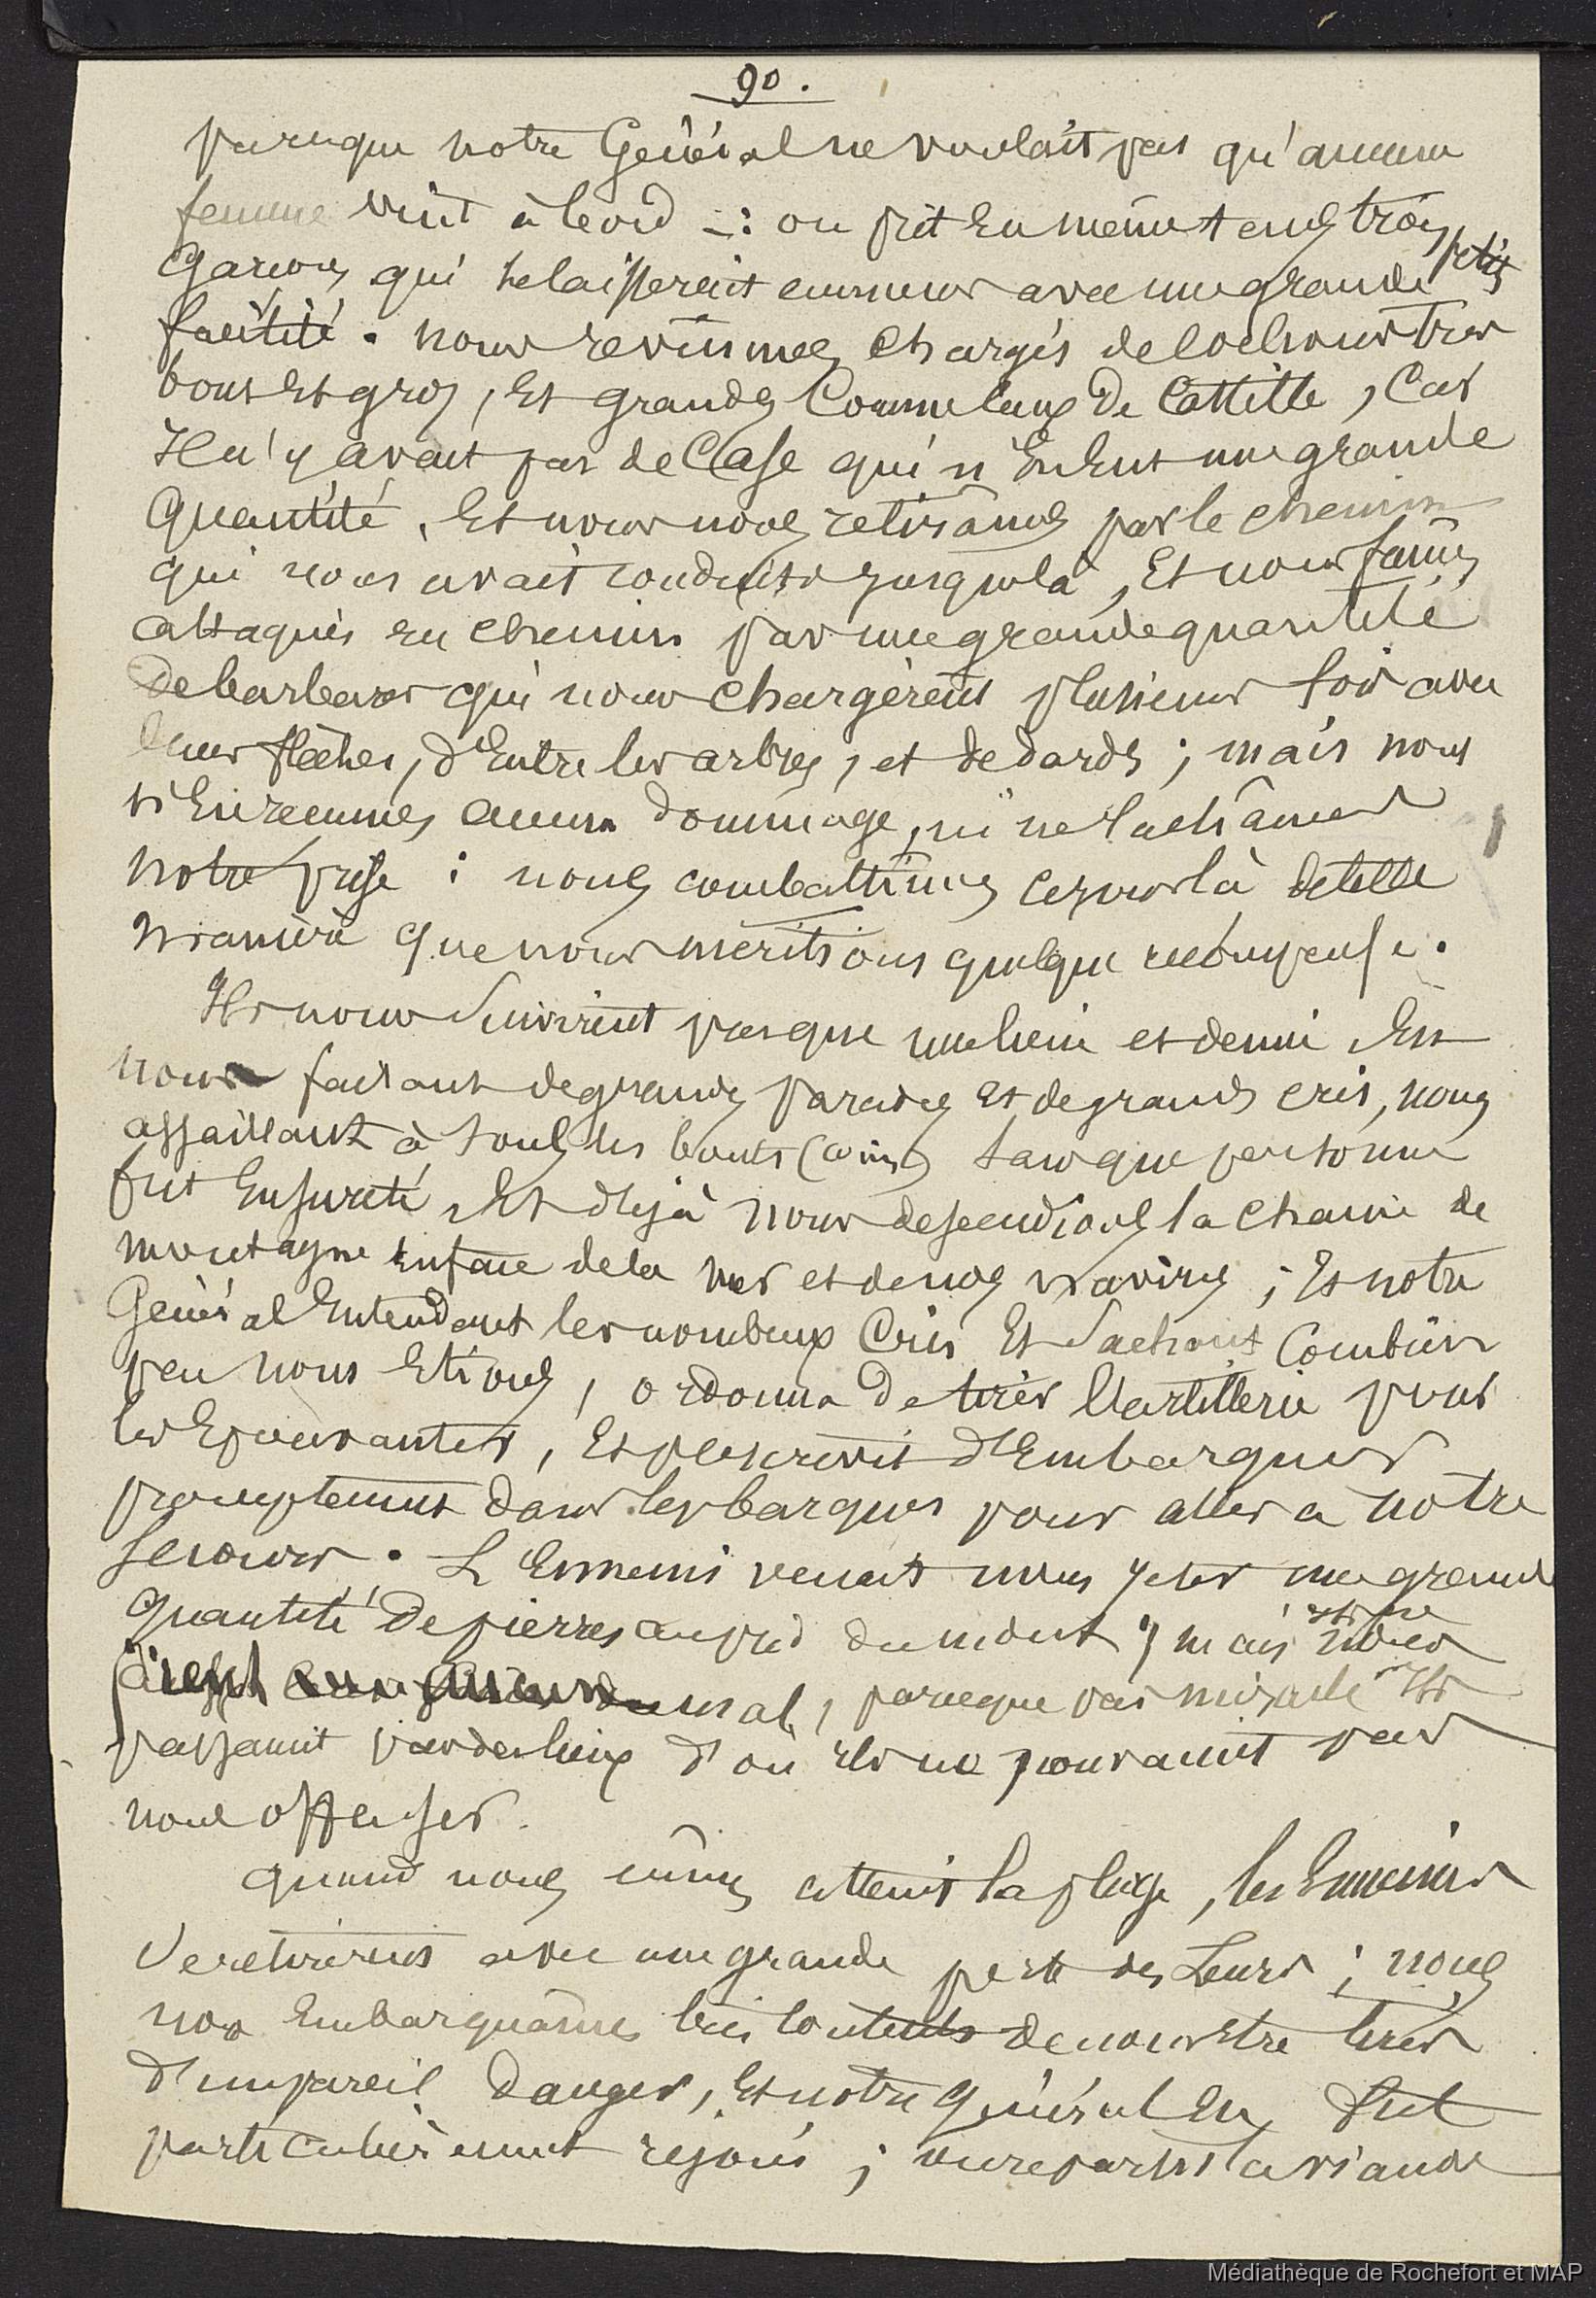 90.
parceque notre Général ne voulait pas qu'aucune
femme vint à bord -: on prit en même tems trois petits
Garçons qui se laisserent emmener avec une grande
facilité. nous revinmes chargés de cochons très
bons et gros, et grands comme ceux de Castille, car
Il n'y avait pas de Case qui n'en eut une grande
quantité. Et nous nous retirâmes par le chemin
qui nous avait conduits jusque là, et nous fumes
attaqués en chemin par une grande quantité
de barbares qui nous chargèrent plusieurs fois avec
leurs flèches, d'entre les arbres, et de dards ; mais nous
n'en reçumes aucun dommage, ni ne lachâmes
notre prise : nous combattimes ce jour là de telle
manière que nous méritions quelque récompense.
Ils nous suivirent presque une lieue et demi en
nous faisant de grandes parades et de grands cris, nous
assaillant à tous les bouts (coins) sans que personne
fut en sureté, et déjà nous descendions la chaine de
montagne en face de la mer et de nos navires ; Et notre
Général entendant les nombreux cris et sachant combien
peu nous etions, ordonna de tirer l'artillerie pour
les epouvanter, et prescrivit d'embarquer
promptement dans les barques pour aller à notre
secours. L'Ennemi venait nous jeter une grande
quantité de pierres au pied du mont ; mais
mal, parceque par miracle Ils
passaient par des lieux d'où ils ne pouvaient pas
nous offenser.
quand nous eûmes atteint la plage, les Ennemis
se retirèrent avec une grande perte des Leurs ; nous
nous embarquâmes très contents de nous être tirés
d'un pareil danger, et notre général en fut
particulièrement rejoui ; on repartit la viande
Médiathèque de Rochefort et MAP